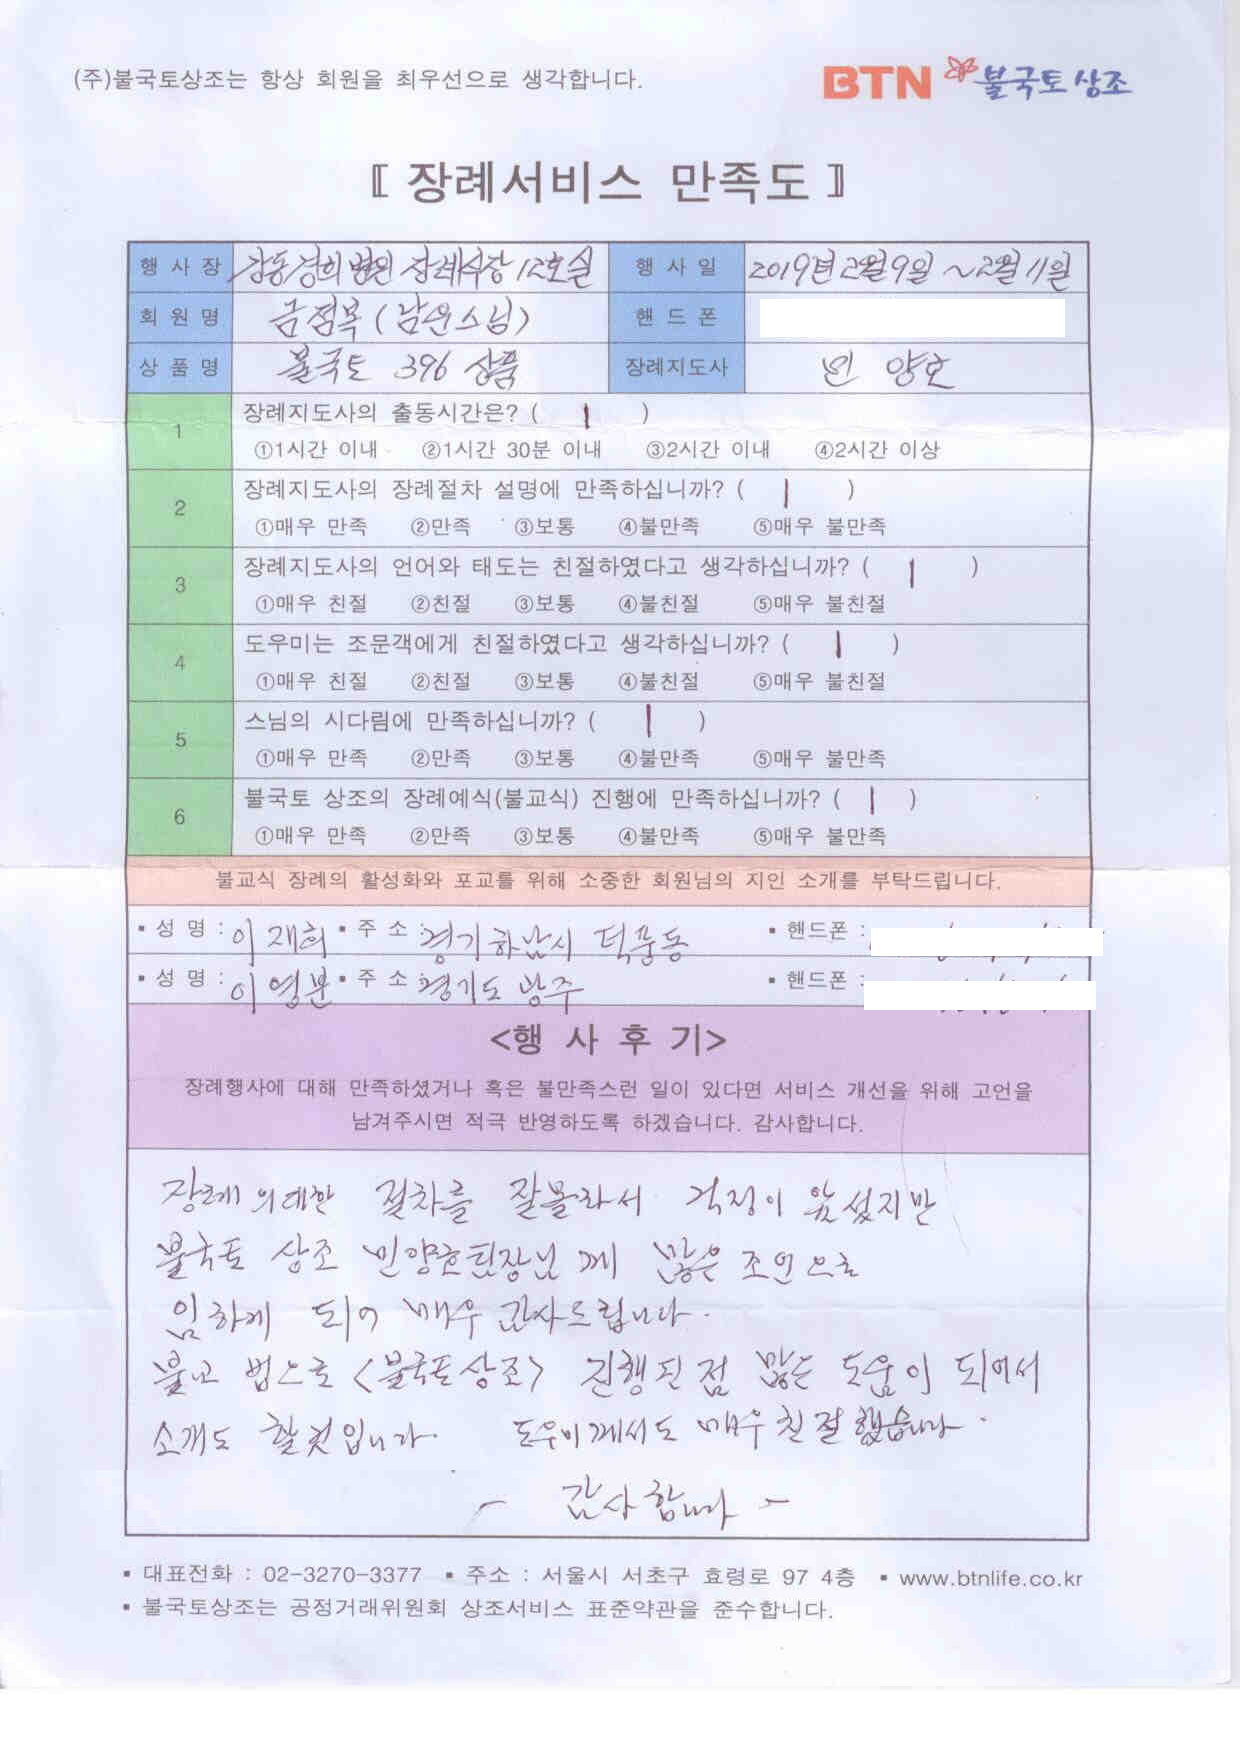 (주)불국토상조는 항상 회원을 최우선으로 생각합니다.
BTN 불국토 상조
〖 장례서비스 만족도 〗
행 사 장 강동경희병원 장례식장 12호실 행 사 일 2019년 2월 9일 ~ 2월 11일
회 원 명 금점복 (남운스님) 핸 드 폰
상 품 명 불국토 396 상품 장례지도사 민 양호
1 장례지도사의 출동시간은? ( 1 )
①1시간 이내 ②1시간 30분 이내 ③2시간 이내 ④2시간 이상
2 장례지도사의 장례절차 설명에 만족하십니까? ( 1 )
①매우 만족 ②만족 ③보통 ④불만족 ⑤매우 불만족
3 장례지도사의 언어와 태도는 친절하였다고 생각하십니까? ( 1 )
①매우 친절 ②친절 ③보통 ④불친절 ⑤매우 불친절
4 도우미는 조문객에게 친절하였다고 생각하십니까? ( 1 )
①매우 친절 ②친절 ③보통 ④불친절 ⑤매우 불친절
5 스님의 시다림에 만족하십니까? ( 1 )
①매우 만족 ②만족 ③보통 ④불만족 ⑤매우 불만족
6 불국토 상조의 장례예식(불교식) 진행에 만족하십니까? ( 1 )
①매우 만족 ②만족 ③보통 ④불만족 ⑤매우 불만족
불교식 장례의 활성화와 포교를 위해 소중한 회원님의 지인 소개를 부탁드립니다.
▪ 성 명 : 이재희 ▪ 주 소 : 경기 하남시 덕풍동 ▪ 핸드폰 :
▪ 성 명 : 이영분 ▪ 주 소 : 경기도 광주 ▪ 핸드폰 :
<행 사 후 기>
장례행사에 대해 만족하셨거나 혹은 불만족스런 일이 있다면 서비스 개선을 위해 고언을
남겨주시면 적극 반영하도록 하겠습니다. 감사합니다.
장례 의대한 절차를 잘몰라서 걱정이 앞섰지만
불국토 상조 민양호팀장님 께 많은 조언으로
임하게 되어 매우 감사드립니다.
불교 법으로 <불국토상조> 진행된 점 많은 도움이 되어서
소개도 할것입니다. 도우미께서도 매우친절했습니다.
- 감사합니다 -
▪ 대표전화 : 02-3270-3377 ▪ 주소 : 서울시 서초구 효령로 97 4층 ▪ www.btnlife.co.kr
▪ 불국토상조는 공정거래위원회 상조서비스 표준약관을 준수합니다.